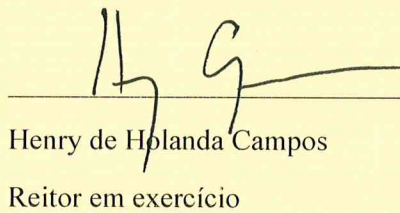 Henry de Holanda Campos
Reitor em exercício